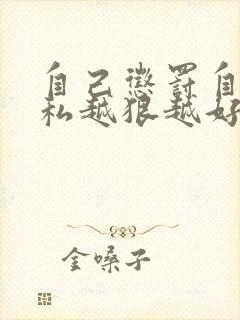 自己惩罚自
私越狠越好
金嗓子